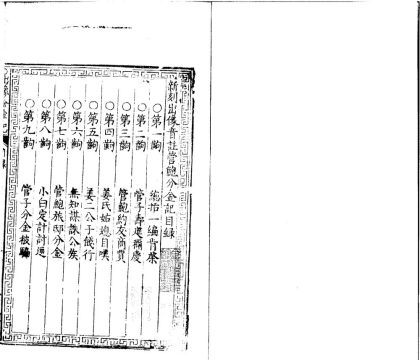 新刻出像音註管鮑分金記目錄
○第一齣 總括一編肯綮
○第二齣 管子壽筵稱慶
○第三齣 管鮑約友商賈
○第四齣 姜氏姑媳自嘆
○第五齣 姜二公子餞行
○第六齣 無知謀議公族
○第七齣 管鮑旅邸分金
○第八齣 小白定計討逃
○第九齣 管子分金被騙